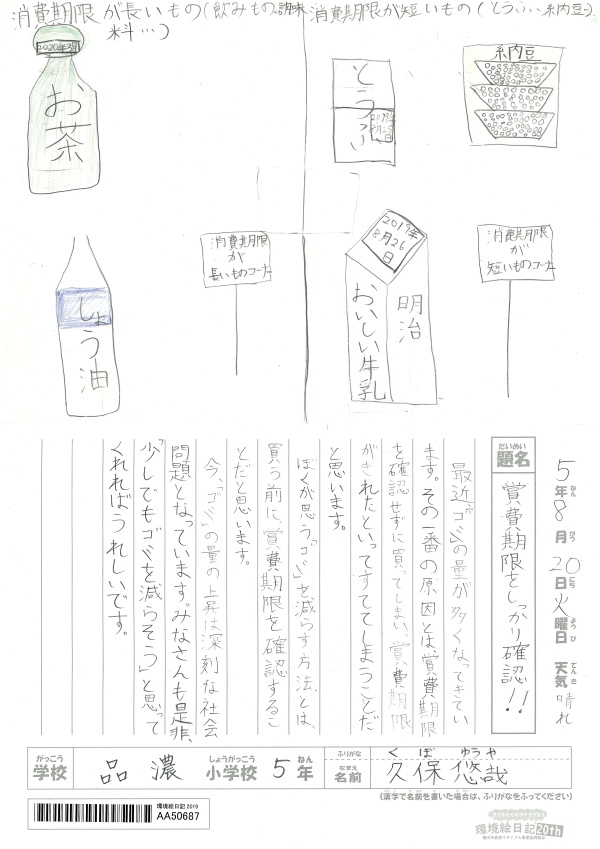 消費期限が長いもの(飲みもの調味
料…)
消費期限が短いもの(とうふ…納豆…)
2020年3月
お茶
とうふ
2019年
8月25日
納豆
しょう油
消費期限
が
長いものコーナー
2019年
8月26
日
明治
おいしい牛乳
消費期限
が
短いものコーナー
5年8月20日火曜日 天気晴れ
ねん がつ にち ようび てんき
だいめい
題名
賞費期限をしっかり確認!!
最近「ゴミ」の量が多くなってきてい
ます。その一番の原因とは、賞費期限
を確認せずに買ってしまい、賞費期限
がきれたといってすててしまうことだ
と思います。
ぼくが思う「ゴミ」を減らす方法とは、
買う前に、賞費期限を確認するこ
とだと思います。
今、「ゴミ」の量の上昇は深刻な社会
問題となっています。みなさんも是非、
「少しでもゴミを減らそう」と思って
くれればうれしいです。
がっこう
学校
品濃
しょうがっこう
小学校
5年
ねん
ふりがな
くぼ ゆうや
なまえ
名前
久保悠哉
(漢字で名前を書いた場合は、ふりがなをふってください)
環境絵日記 2019
AA50687
環境絵日記20th